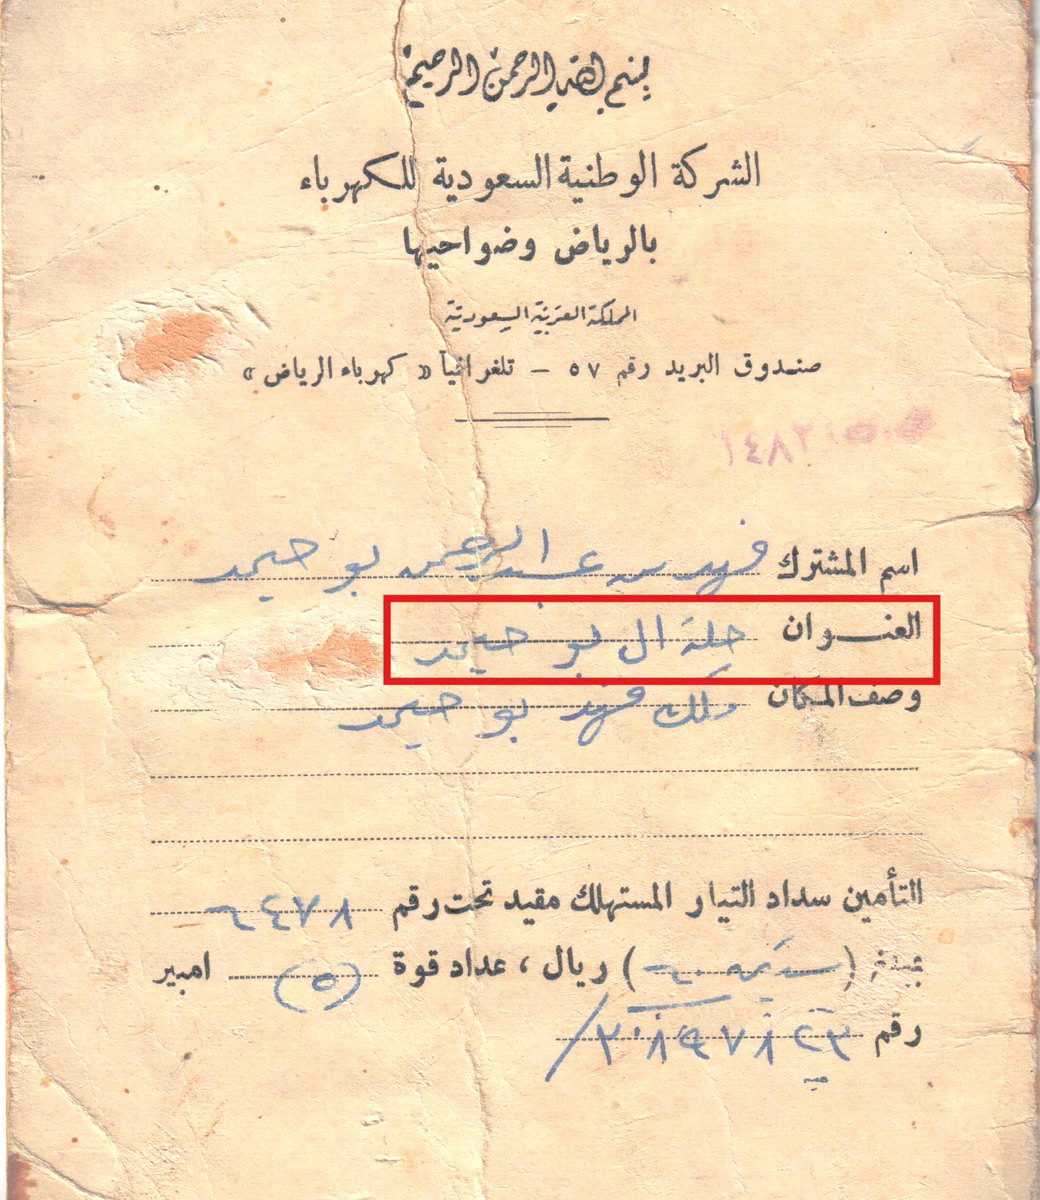 بسم الله الرحمن الرحيم
الشركة الوطنية السعودية للكهرباء
بالرياض وضواحيها
المملكة العربية السعودية
صندوق البريد رقم ٥٧ – تلغرافياً « كهرباء الرياض »
اسم المشترك فهد بن عبد الرحمن بو حيمد
العنـوان حلة ال بو حيمد
وصف المكان ملك فهد بو حيمد
التأمين سداد التيار المستهلك مقيد تحت رقم ٨٧٤
بمبلغ ( ) ريال ، عداد قوة (٥) امبير
رقم